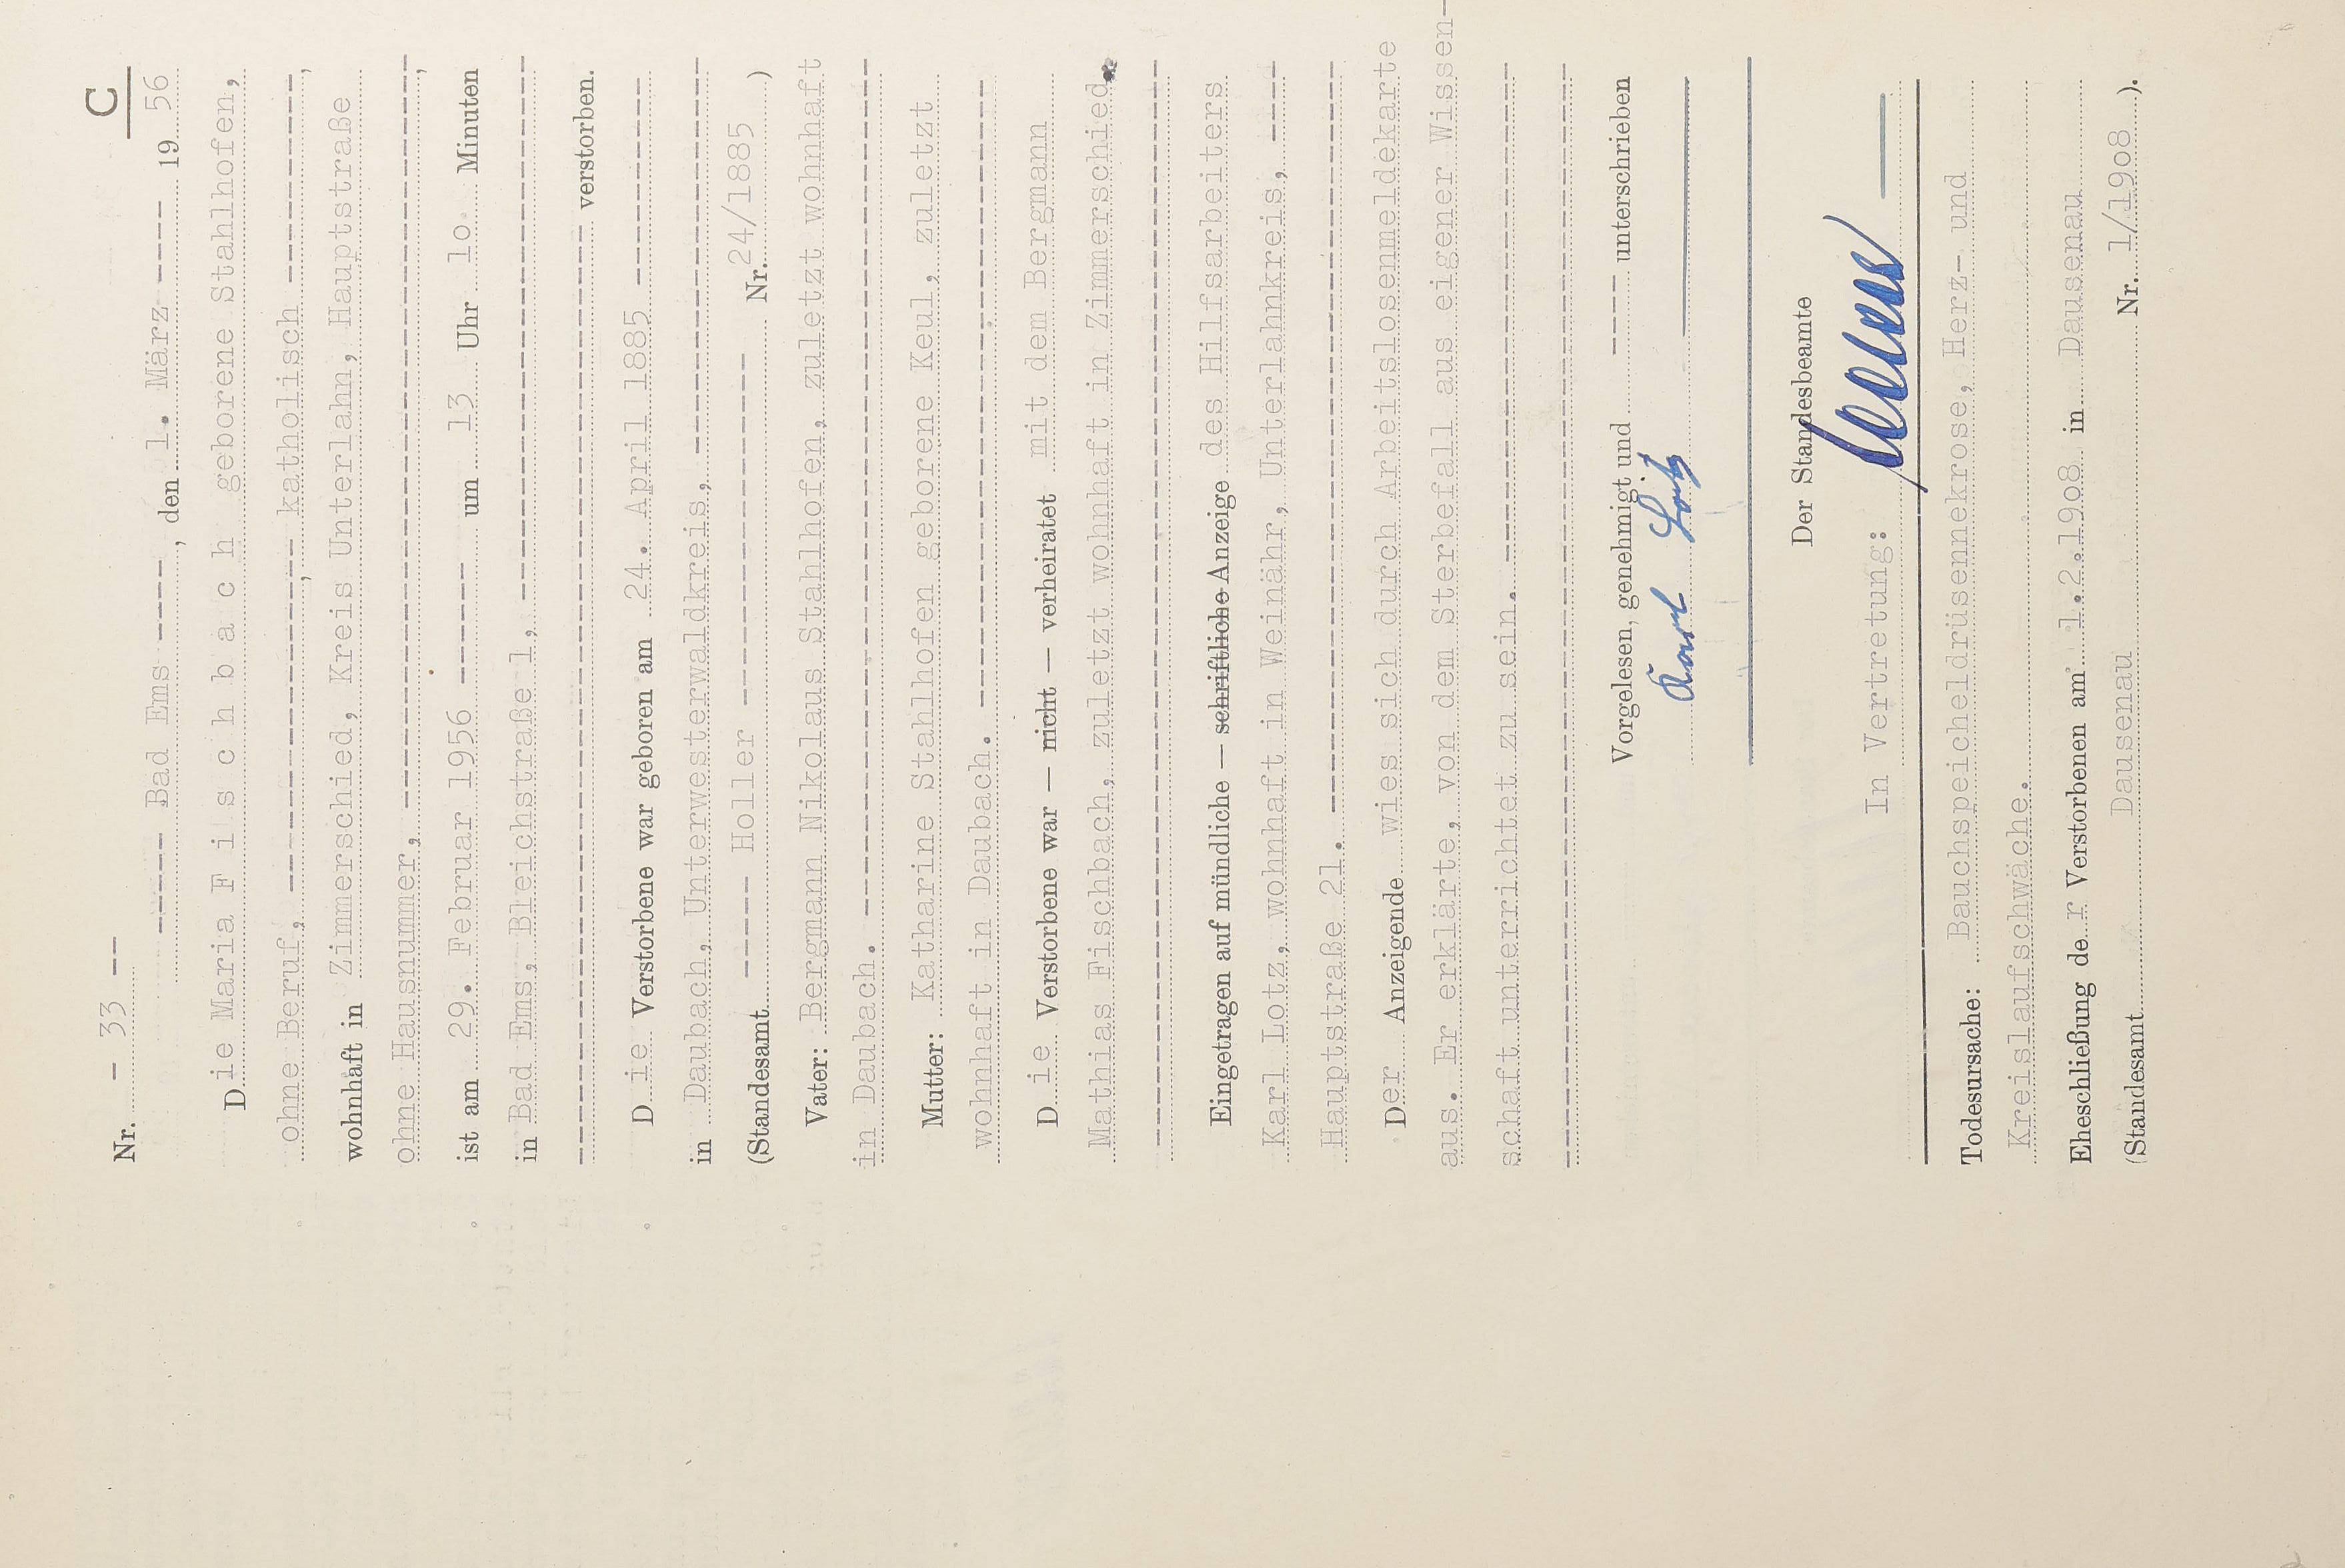 C
Nr. - 33 --
----- Bad Ems ----, den 1. März ---- 1956
Die Maria F i s c h b a c h geborene Stahlhofen,
ohne Beruf, ----------------, katholisch ----------,
wohnhaft in Zimmerschied, Kreis Unterlahn, Hauptstraße
ohne Hausnummer, ----------------------------------,
ist am 29. Februar 1956 ------ um 13 Uhr 10 Minuten
in Bad Ems, Bleichstraße 1, -------------------------
---------------------------------------- verstorben.
Die Verstorbene war geboren am 24. April 1885 ----------
in Daubach, Unterwesterwaldkreis, ------------------
(Standesamt ----- Holler ---------------- Nr. 24/1885 )
Vater: Bergmann Nikolaus Stahlhofen, zuletzt wohnhaft
in Daubach. ----------------------------------------
Mutter: Katharine Stahlhofen geborene Keul, zuletzt
wohnhaft in Daubach. ------------------------------
Die Verstorbene war — nicht — verheiratet mit dem Bergmann
Mathias Fischbach, zuletzt wohnhaft in Zimmerschied.
----------------------------------------------------
Eingetragen auf mündliche — schriftliche Anzeige des Hilfsarbeiters
Karl Lotz, wohnhaft in Weinähr, Unterlahnkreis, ----
Hauptstraße 21. ------------------------------------
Der Anzeigende wies sich durch Arbeitslosenmeldekarte
aus. Er erklärte, von dem Sterbefall aus eigener Wissen-
schaft unterrichtet zu sein. -----------------------
----------------------------------------------------
Vorgelesen, genehmigt und ---- unterschrieben
Karl Lotz
Der Standesbeamte
In Vertretung:
Todesursache: Bauchspeicheldrüsennekrose, Herz- und
Kreislaufschwäche.
Eheschließung der Verstorbenen am 1.2.1908 in Dausenau
(Standesamt Dausenau Nr. 1/1908 ).